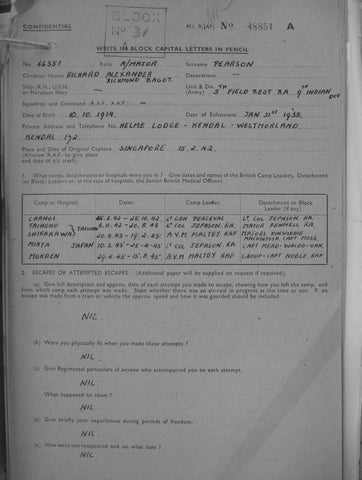 CONFIDENTIAL
BLOCK
No 31
M.I. 9/JAP/ No 48851 A
WRITE IN BLOCK CAPITAL LETTERS IN PENCIL
No. 66351 Rank A/MAJOR Surname PEARSON
Christian Names RICHARD ALEXANDER Decorations
RICHMOND BAGOT.
Ship (R.N., U.S.N. or Merchant Navy) Unit & Div. (Army) 5TH FIELD REGT RA. 9TH INDIAN DIV
Squadron and Command (R.A.F. A.A.F.)
Date of Birth 10.10.1914. Date of Enlistment JAN 31st 1935.
Private Address and Telephone No. HELME LODGE - KENDAL - WESTMORLAND.
KENDAL 172.
Place and Date of Original Capture. SINGAPORE 15.2.42.
(Aircrew R.A.F. to give place and date of a/c crash.)
1. What camps, detachments or hospitals were you in? Give dates and names of the British Camp Leaders, Detachment (or Block) Leaders or, in the case of hospitals, the Senior British Medical Officers.
Camp or Hospital. Dates. Camp Leader. Detachment or Block Leader (if any).
CHANGI. 15.2.42 - 25.10.42. Lt GEN PERCEVAL Lt COL JEPHSON RA.
TAIHOKU TAIWAN 6.11.42 - 20.8.43 Lt COL JEPHSON, RA. MAJOR
SHIRAKAWA 20.8.43 - 19.2.45. A.V.M MALTBY RAF MAJORS CAPT
JAPAN 10.3.45 - 25.4.45 Lt COL JEPHSON. RA CAPT MEAD-WALDO. VAN
MUKDEN 29.4.45 - 15.8.45. A.V.M MALTBY RAF GROUP-CAPT NOBLE. RAF
2. ESCAPES OR ATTEMPTED ESCAPES. (Additional paper will be supplied on request if required).
(a) Give full description and approx. date of each attempt you made to escape, showing how you left the camp, and from which camp each attempt was made. State whether there was an air-raid in progress at the time or not. If an escape was made from a train or vehicle the approx. speed and how it was guarded should be included.
NIL.
(b) Were you physically fit when you made these attempts?
NIL.
(c) Give Regimental particulars of anyone who accompanied you on each attempt.
NIL.
What happened to them?
NIL.
(d) Give briefly your experiences during periods of freedom.
NIL
(e) How were you recaptured and on what date?
NIL